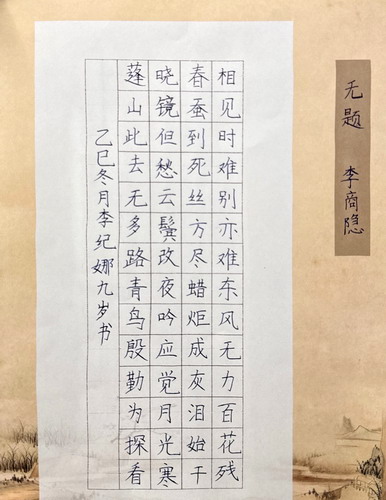 无题 李商隐
相见时难别亦难东风无力百花残
春蚕到死丝方尽蜡炬成灰泪始干
晓镜但愁云鬓改夜吟应觉月光寒
蓬山此去无多路青鸟殷勤为探看
乙巳冬月李纪娜九岁书